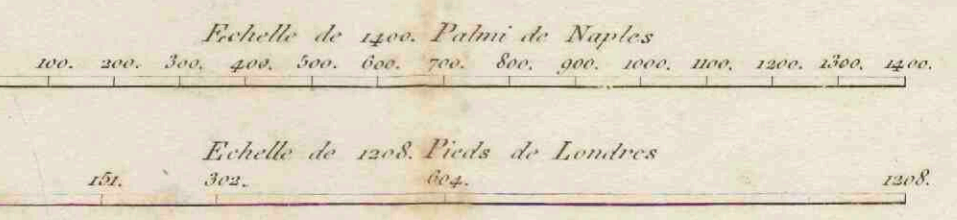 Echelle de 1400. Palmi de Naples
100. 200. 300. 400. 500. 600. 700. 800. 900. 1000. 1100. 1200. 1300. 1400.
Echelle de 1208. Pieds de Londres
151. 302. 604. 1208.